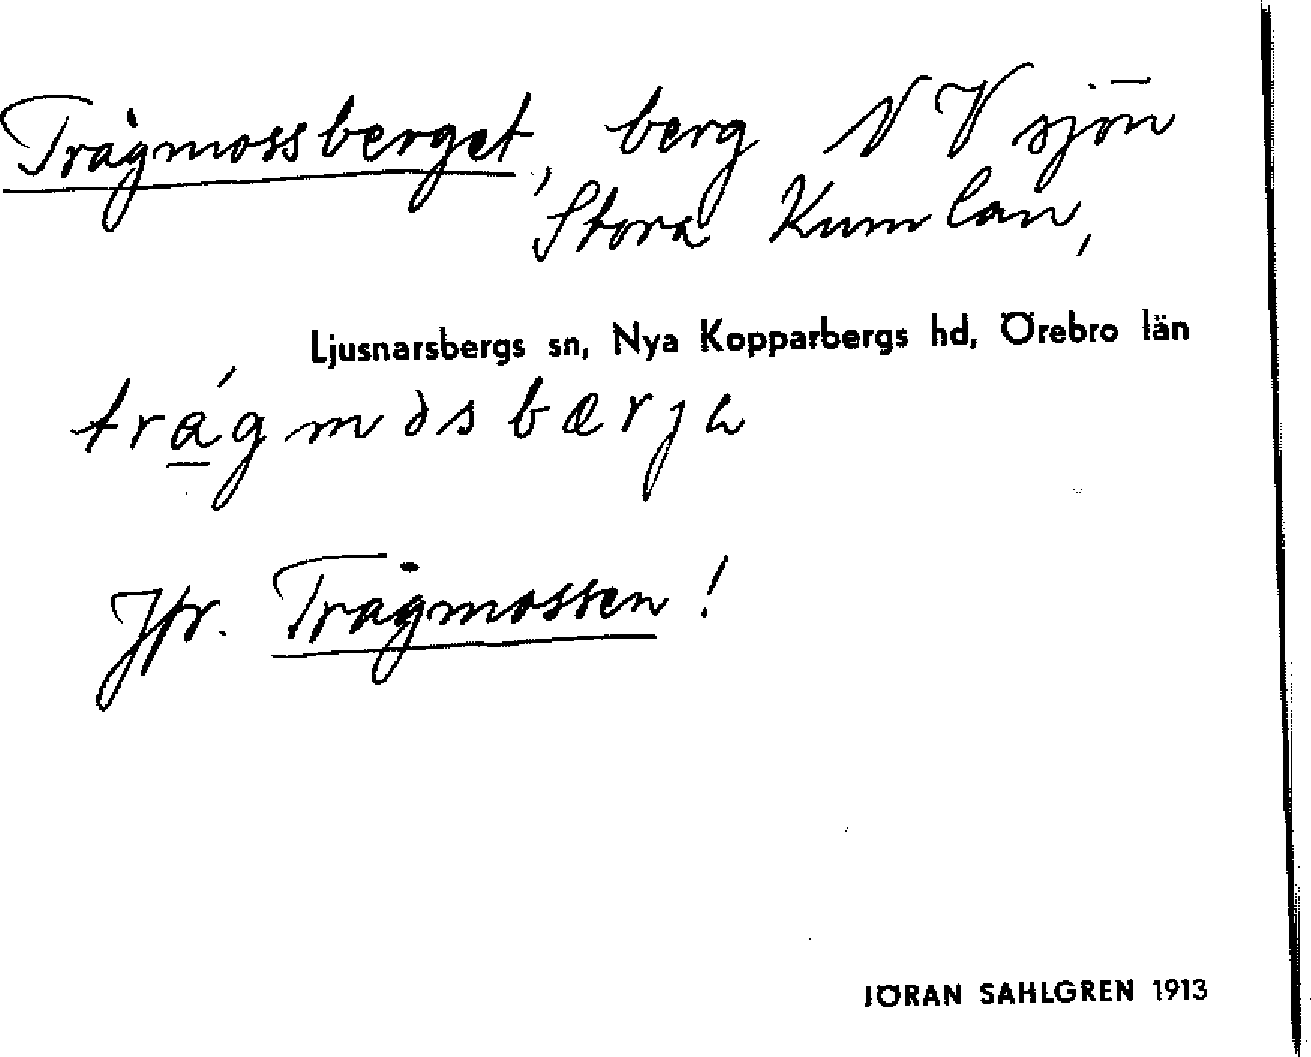 Trågmossberget, berg NV sjön
Stora Kumlan,
Ljusnarsbergs sn, Nya Kopparbergs hd, Örebro län
Jfr. Trågmossen!
JÖRAN SAHLGREN 1913